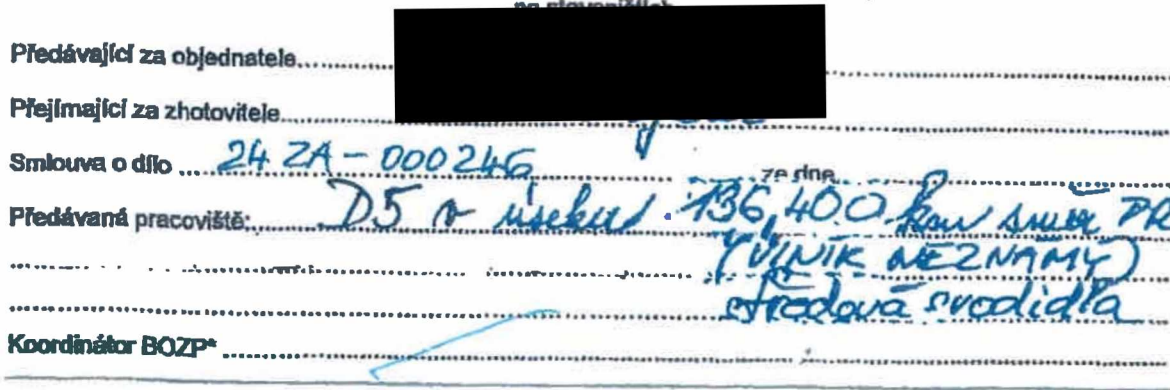 na staveništích
Předávající za objednatele
Přejímající za zhotovitele
Smlouva o dílo 24 ZA - 000246 ze dne
Předávaná pracoviště: D5 v úseku 136,400 km směr
(VINÍK NEZNÁMÝ)
středová svodidla
Koordinátor BOZP*